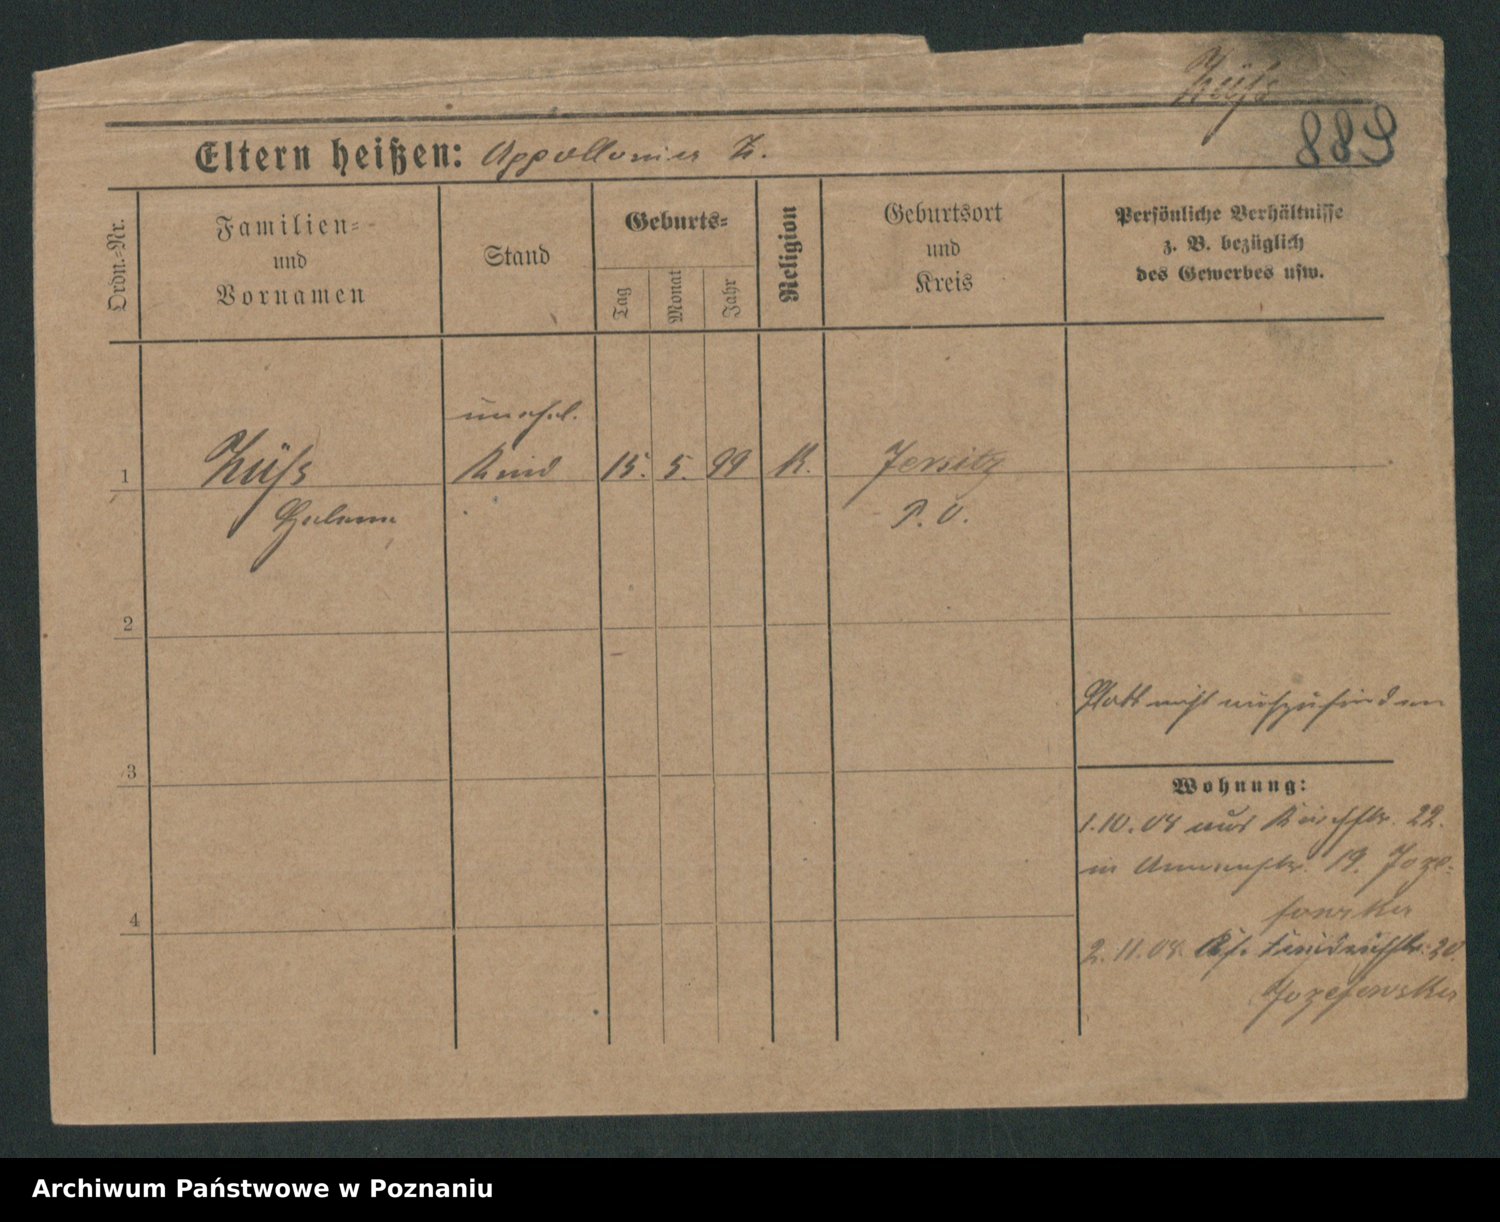 Züfs
889
Eltern heißen: Appollonia Z.
Ordn.=Nr.
Familien=
und
Vornamen
Stand
Geburts=
Tag
Monat
Jahr
Religion
Geburtsort
und
Kreis
Persönliche Verhältnisse
z. B. bezüglich
des Gewerbes usw.
unehel.
1 Züfs Kind 15. 5. 99 K. Jersitz
Helene P. O.
2
nicht aufzufinden
3
Wohnung:
1.10.08 aus Kirchstr. 22.
in 19. Joze-
fowska
4
2.11.08. 20.
Jozefowska
Archiwum Państwowe w Poznaniu